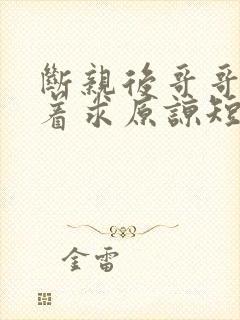 斷親後哥哥
着求原諒短
金雷